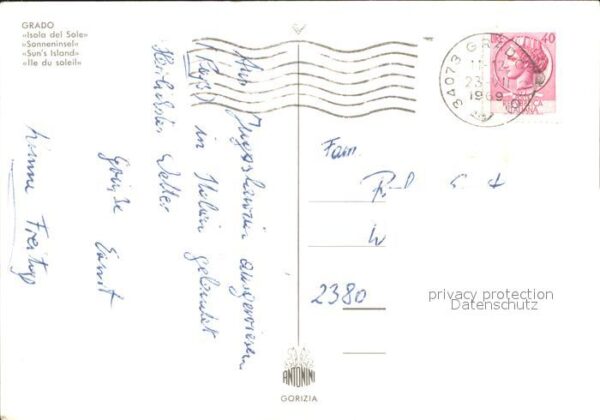 GRADO
«Isola del Sole»
«Sonneninsel»
«Sun's Island»
«Ile du soleil»
Aus Jugoslawien ausgewiesen
(Paß!) in Italien gelandet
Herrlichstes Wetter
Grüße Ernst
komme Freitag
34073 GRADO
11-12
23-VII
1969
40
Fam.
2380
privacy protection
Datenschutz
ANTONINI
GORIZIA